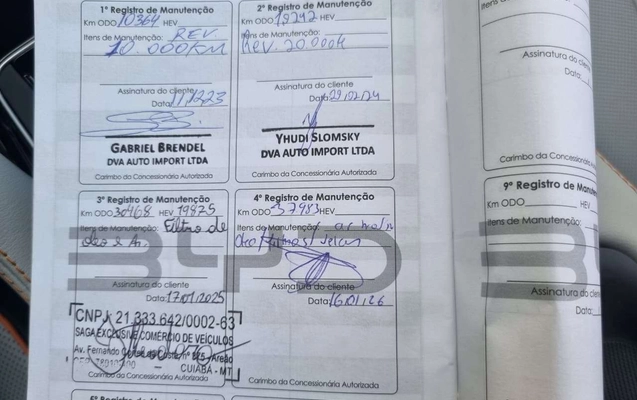 1º Registro de Manutenção
Km ODO 10364 HEV
Itens de Manutenção: REV
10.000KM
Assinatura do cliente
Data: 11,12,23
GABRIEL BRENDEL
DVA AUTO IMPORT LTDA
Carimbo da Concessionária Autorizada
2º Registro de Manutenção
Km ODO 19242 HEV
Itens de Manutenção:
Rev. 20.000K
Assinatura do cliente
Data:
YHUDI SLOMSKY
DVA AUTO IMPORT LTDA
Carimbo da Concessionária Autorizada
3º Registro de Manutenção
Km ODO 30468 HEV 19825
Itens de Manutenção: Filtro de
óleo e Ar.
Assinatura do cliente
Data: 17/01/2025
CNPJ 21.333.642/0002-63
SAGA EXCLUSIVE COMÉRCIO DE VEÍCULOS
Av. Fernando
Areão
CUIABÁ - MT
Carimbo da Concessionária Autorizada
4º Registro de Manutenção
Km ODO 37983 HEV
Itens de Manutenção:
Assinatura do cliente
Data: 16/01/26
Carimbo da Concessionária Autorizada
Assinatura do clien
Data:
Carimbo da Concessionária
9º Registro de Manuten
Km ODO HEV
Itens de Manutenção:
Assinatura do clien
Data: